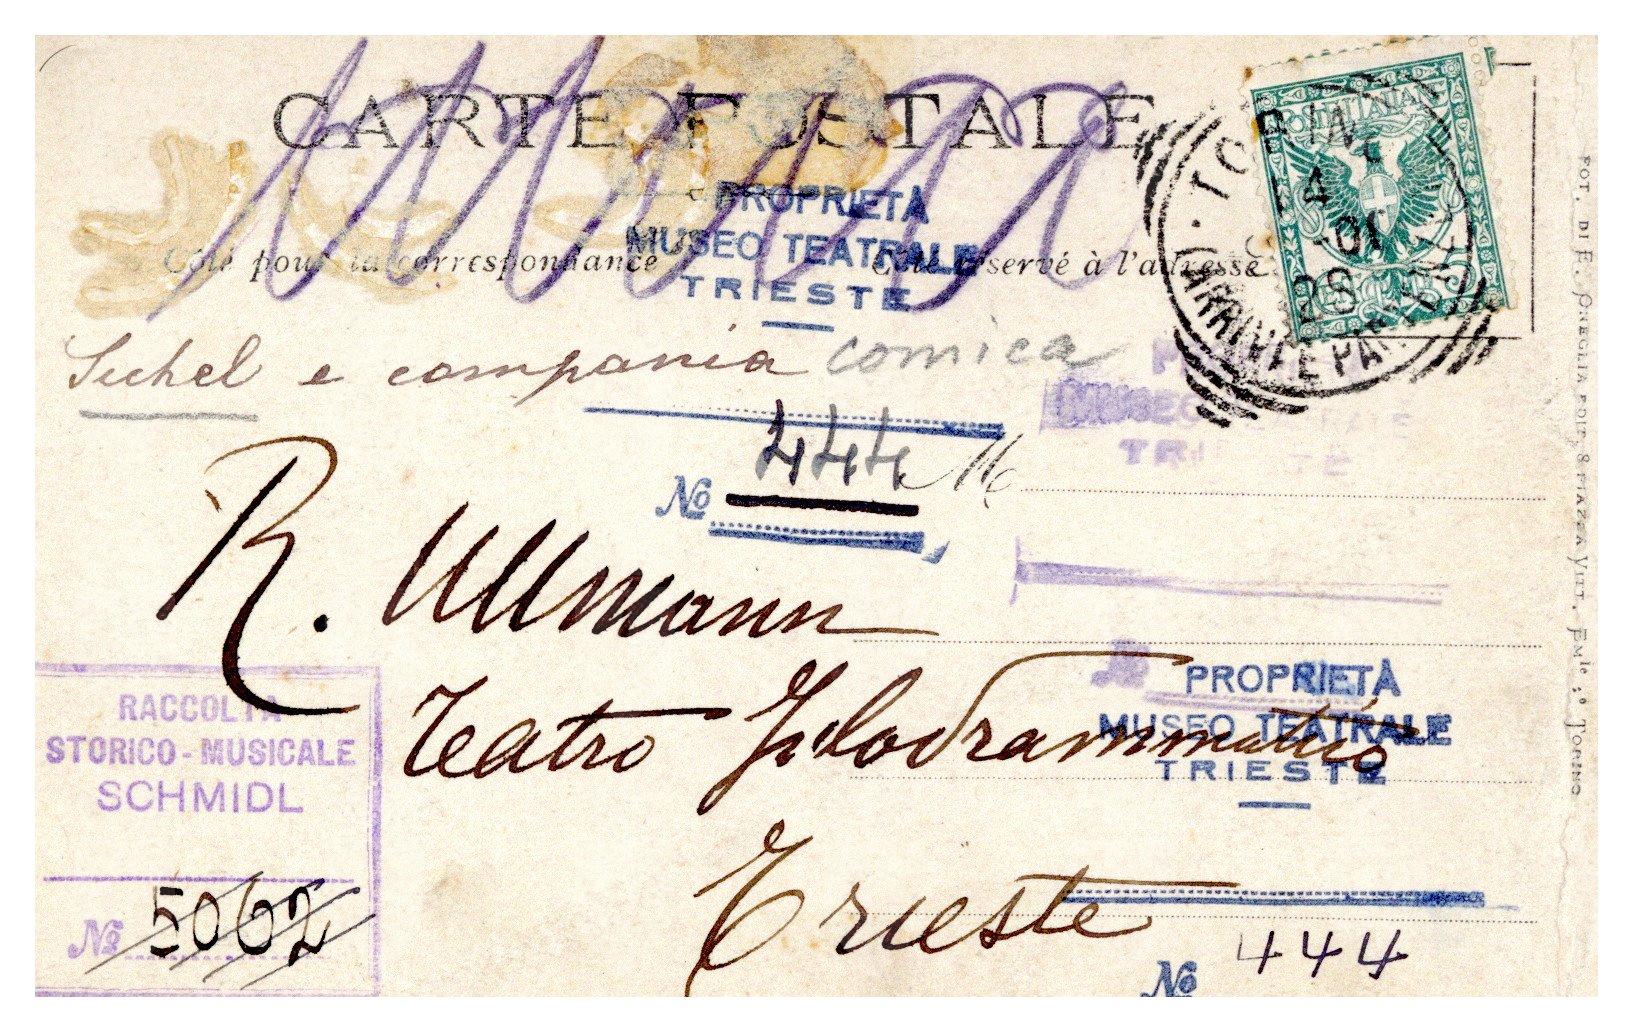 CARTE POSTALE
Côté pour la correspondance
Côté réservé à l'adresse
POSTE ITALIANE
TORINO
4
28
ARRIVI E PARTENZE
PROPRIETÀ
MUSEO TEATRALE
TRIESTE
Sichel e compania comica
MUSEO
TRIESTE
No 444
M
R. Ullmann
Teatro Filodrammatico
Trieste
PROPRIETÀ
MUSEO TEATRALE
TRIESTE
No 444
RACCOLTA
STORICO-MUSICALE
SCHMIDL
No 5062
FOT. DI E. ONEGLIA EDIT. 8 PIAZZA VITT. EMle IIo TORINO